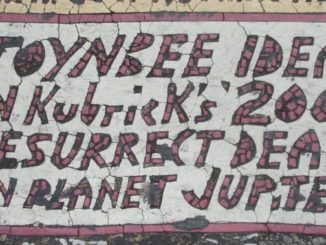 TOYNBEE IDE
N Kubrick's '200
ESURRECT DEA
N PLANET JUPITE